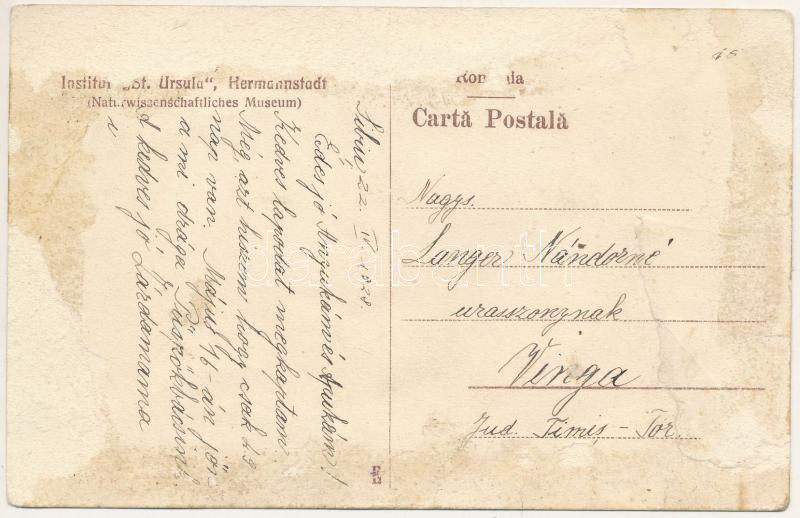 Institut „St. Ursula", Hermannstadt
(Naturwissenschaftliches Museum)
Sibiu, 22. IV. 1928.
Édes jó Anyukám és Apukám!
Kedves lapodat megkaptam
Még azt hiszem hogy csak 12
nap van. Május 16-án jön
a mi drága Püspökbácsink
A kedves jó
România
Cartă Postală
Nagys.
Langer Nándorné
urasszonynak
Vinga
Jud. Timiș-Tor.